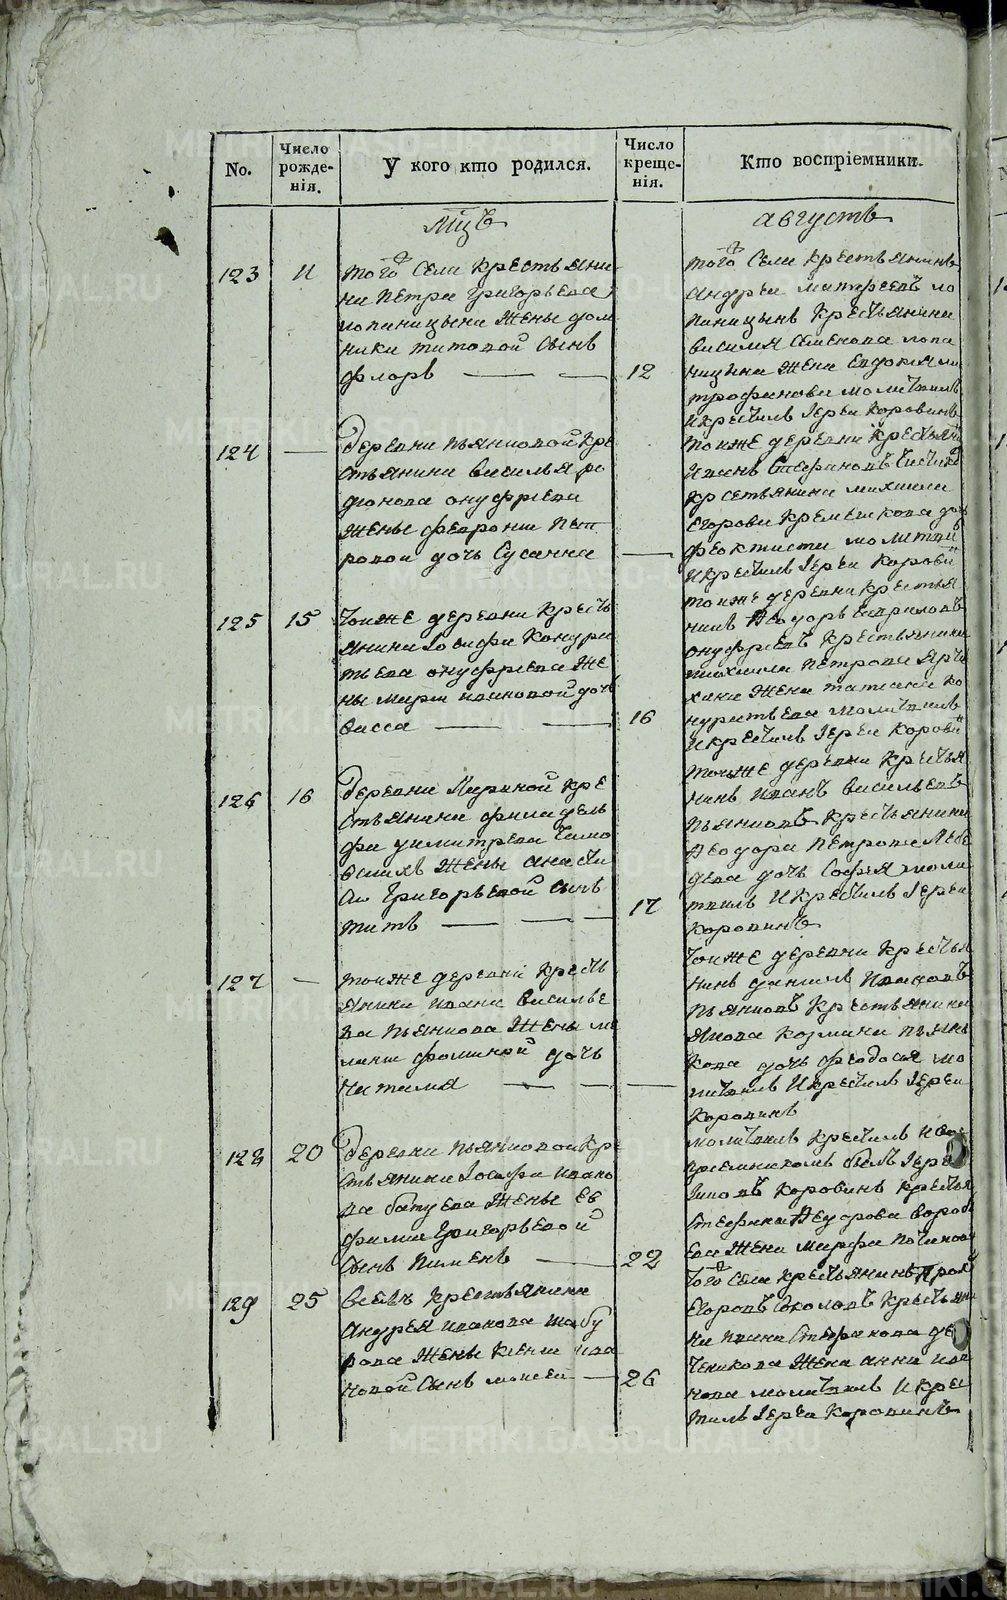 No.
Число рожде-нія.
У кого кто родился.
Число креще-нія.
Кто воспріемники.
мцъ
августъ
123
11
того села крестьяни
на петра григорьева
лопаницына жены дом
ники титовой сынъ
флоръ
12
того села крестьянинъ
андреи матфеевъ ло
паницынъ крестьянина
василия семенова лопа
ницына жена евдокия ми
трофанова молитвилъ
и крестилъ иереи коровинъ
124
деревни пьянковой кре
стьянина василья ро
дионова онуфриева
жены февронии пет
ровой дочь Сусанна
тоиже деревни крестьяни
иванъ стефановъ
крестьянина михаила
егорова кремешкова дочь
феоктиста молитвил
и крестилъ иереи корови
125
15
тоиже деревни кресть
янина иосифа кондра
тьева онуфриева же
ны марии ивановой дочь
васса
16
тоиже деревни крестья
нинъ Феодоръ гавриловъ
онуфриевъ крестьянина
михаила петрова
жена татиана ко
ндратьева молитвилъ
и крестилъ иереи корови
126
16
деревни Лариной кре
стьянина филадель
фа димитриева
жены анаста
сии григорьевой сынъ
титъ
17
тоиже деревни крестья
нинъ иванъ васильевъ
пьянковъ крестьянина
Феодора петрова
дочь софья моли
твилъ и крестилъ иереи
коровинъ
127
тоиже деревни кресть
янина ивана василье
ва пьянкова жены ме
лании фоминой дочь
наталия
тоиже деревни крестья
нинъ данилъ ивановъ
пьянковъ крестьянина
якова козмина пьян
кова дочь феодосья мо
литвилъ и крестилъ иереи
коровинъ
128
20
деревни пьянковой кре
стьянина иосифа ивано
ва батуева жены ев
фимии григорьевой
сынъ пименъ
22
молитвилъ крестилъ и вос
приемникомъ былъ иереи
коровинъ крестья
стефана Феодорова
жена марфа
129
25
крестьянина
андрея иванова табу
рова жены ксении ива
новой сынъ моисеи
26
того села крестьянинъ
егоровъ соколовъ крестьяни
на ивана стефанова
жена анна ива
нова молитвилъ и крес
тилъ иереи коровинъ
METRIKI.GASO-URAL.RU